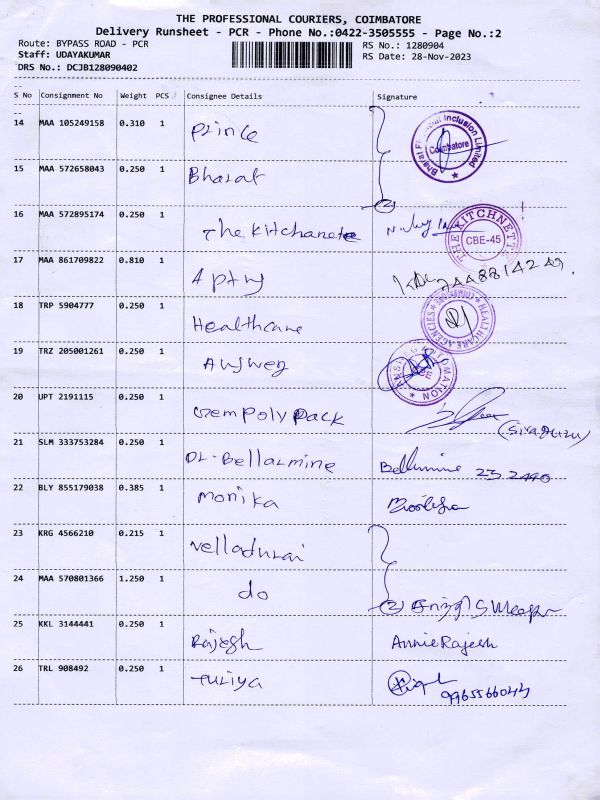 THE PROFESSIONAL COURIERS, COIMBATORE
Delivery Runsheet - PCR - Phone No.:0422-3505555 - Page No.:2
Route: BYPASS ROAD - PCR RS No.: 1280904
Staff: UDAYAKUMAR RS Date: 28-Nov-2023
DRS No.: DCJB128090402
S No Consignment No Weight PCS Consignee Details Signature
14 MAA 105249158 0.310 1 Prince
Bharat Financial Inclusion Limited
Coimbatore
15 MAA 572658043 0.250 1 Bharat
(2)
16 MAA 572895174 0.250 1 The Kitchanete
THE KITCHNETTE
CBE-45
17 MAA 861709822 0.810 1
7448814249
18 TRP 5904777 0.250 1 Healthcare
HEALTHCARE AGENCIES
19 TRZ 205001261 0.250 1
AUTOMATION
20 UPT 2191115 0.250 1 Gem Poly Pack
21 SLM 333753284 0.250 1 Dr. Bellarmine Bellarmine 23 2440
22 BLY 855179038 0.385 1 Monika
23 KRG 4566210 0.215 1 Velladurai
24 MAA 570801366 1.250 1 do (2)
25 KKL 3144441 0.250 1 Rajesh Annie Rajesh
26 TRL 908492 0.250 1 Turiya